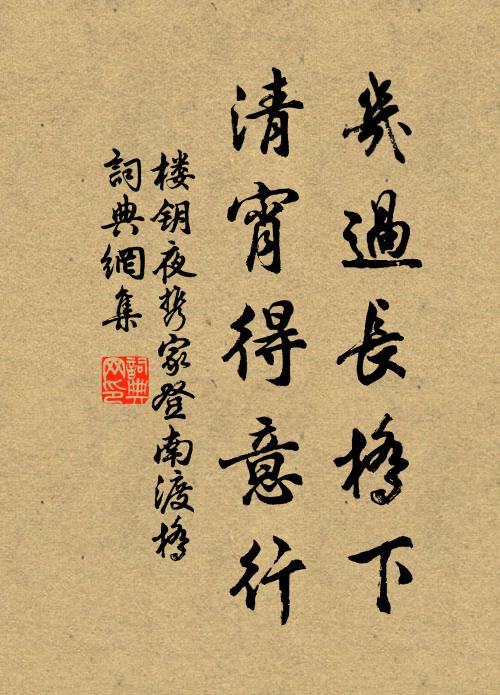 幾過長橋下
清宵得意行
楼钥夜携家登南渡橋
詞典網集
詞典网印